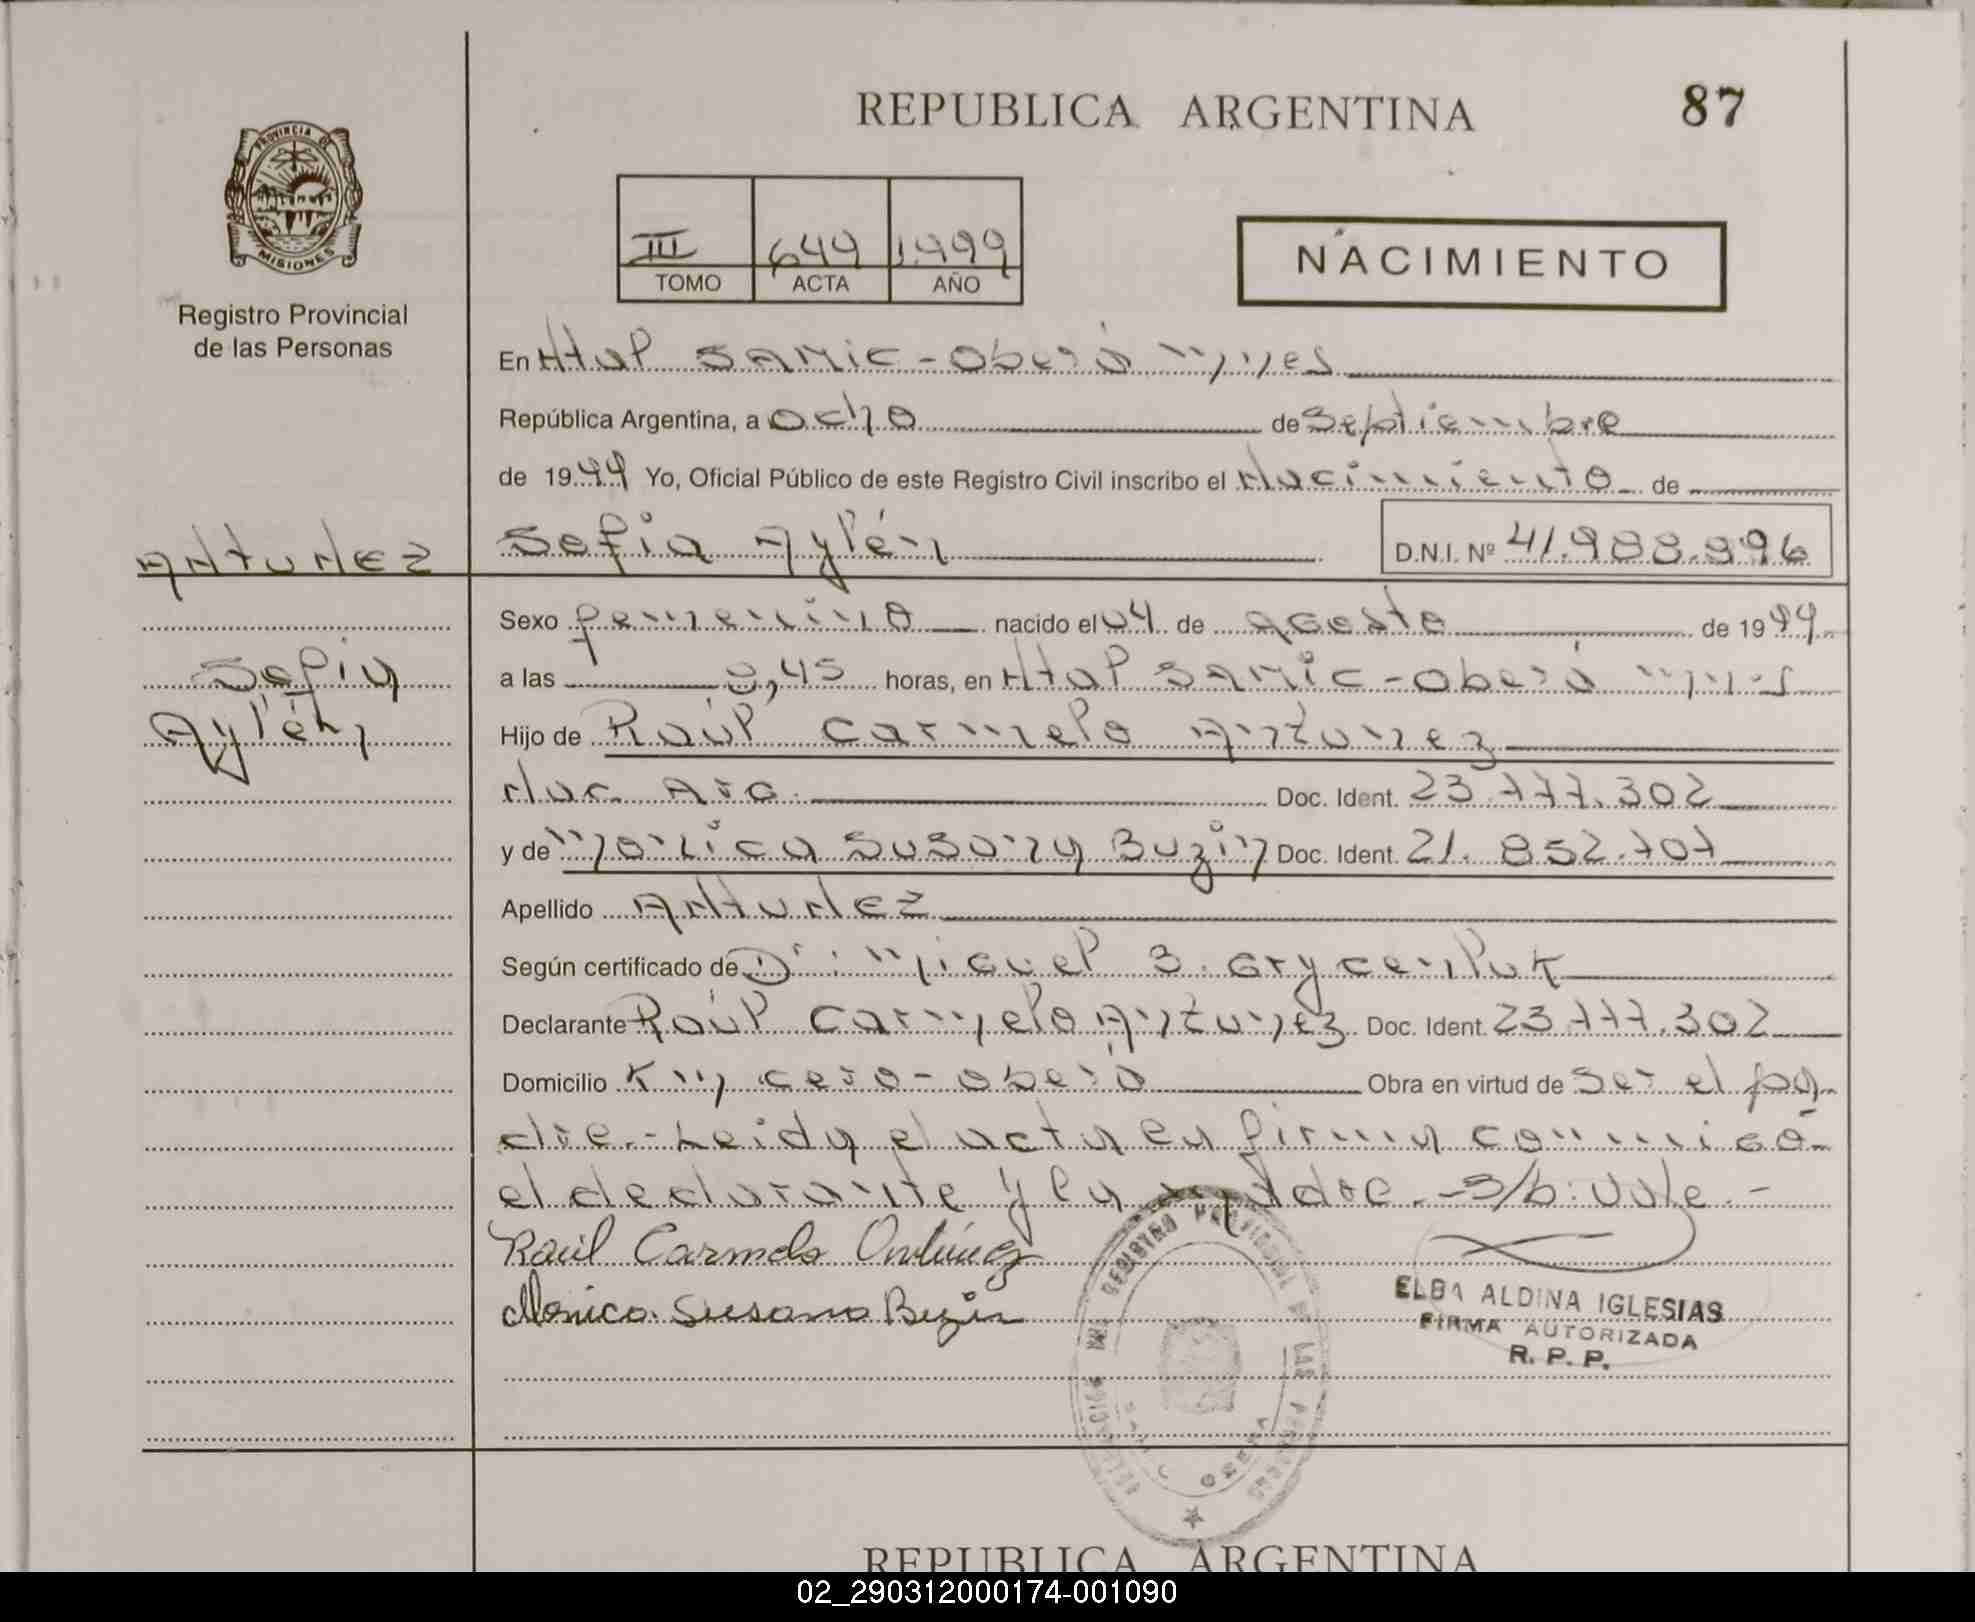 REPUBLICA ARGENTINA
87
PROVINCIA DE
MISIONES
Registro Provincial
de las Personas
III 649 1.999
TOMO ACTA AÑO
NACIMIENTO
En Htal SAMIC - Oberá Mnes
República Argentina, a ocho de Septiembre
de 1999 Yo, Oficial Público de este Registro Civil inscribo el Nacimiento de
ANTUNEZ
Sofia Aylén
D.N.I. Nº 41.988.996
Sexo femenino nacido el 04 de agosto de 1999
Sofia
a las 8,45 horas, en Htal SAMIC - Oberá Mnes
Aylén
Hijo de Raúl Carmelo Antunez
Nac. Arg. Doc. Ident. 23.777.302
y de Monica Susana Buzin Doc. Ident. 21.852.707
Apellido ANTUNEZ
Según certificado de Dr. Miguel
Declarante Raúl Carmelo Antunez Doc. Ident. 23.777.302
Domicilio Km cero - Oberá Obra en virtud de ser el pa
dre.- Leida el acta la firma conmigo
el declarante y la madre.- S/b: Vale.-
Raúl Carmelo Antúnez
Monica Susana Buzin
ELBA ALDINA IGLESIAS
FIRMA AUTORIZADA
R. P. P.
REGISTRO PROVINCIAL DE LAS PERSONAS
OBERA
REPUBLICA ARGENTINA
02_290312000174-001090